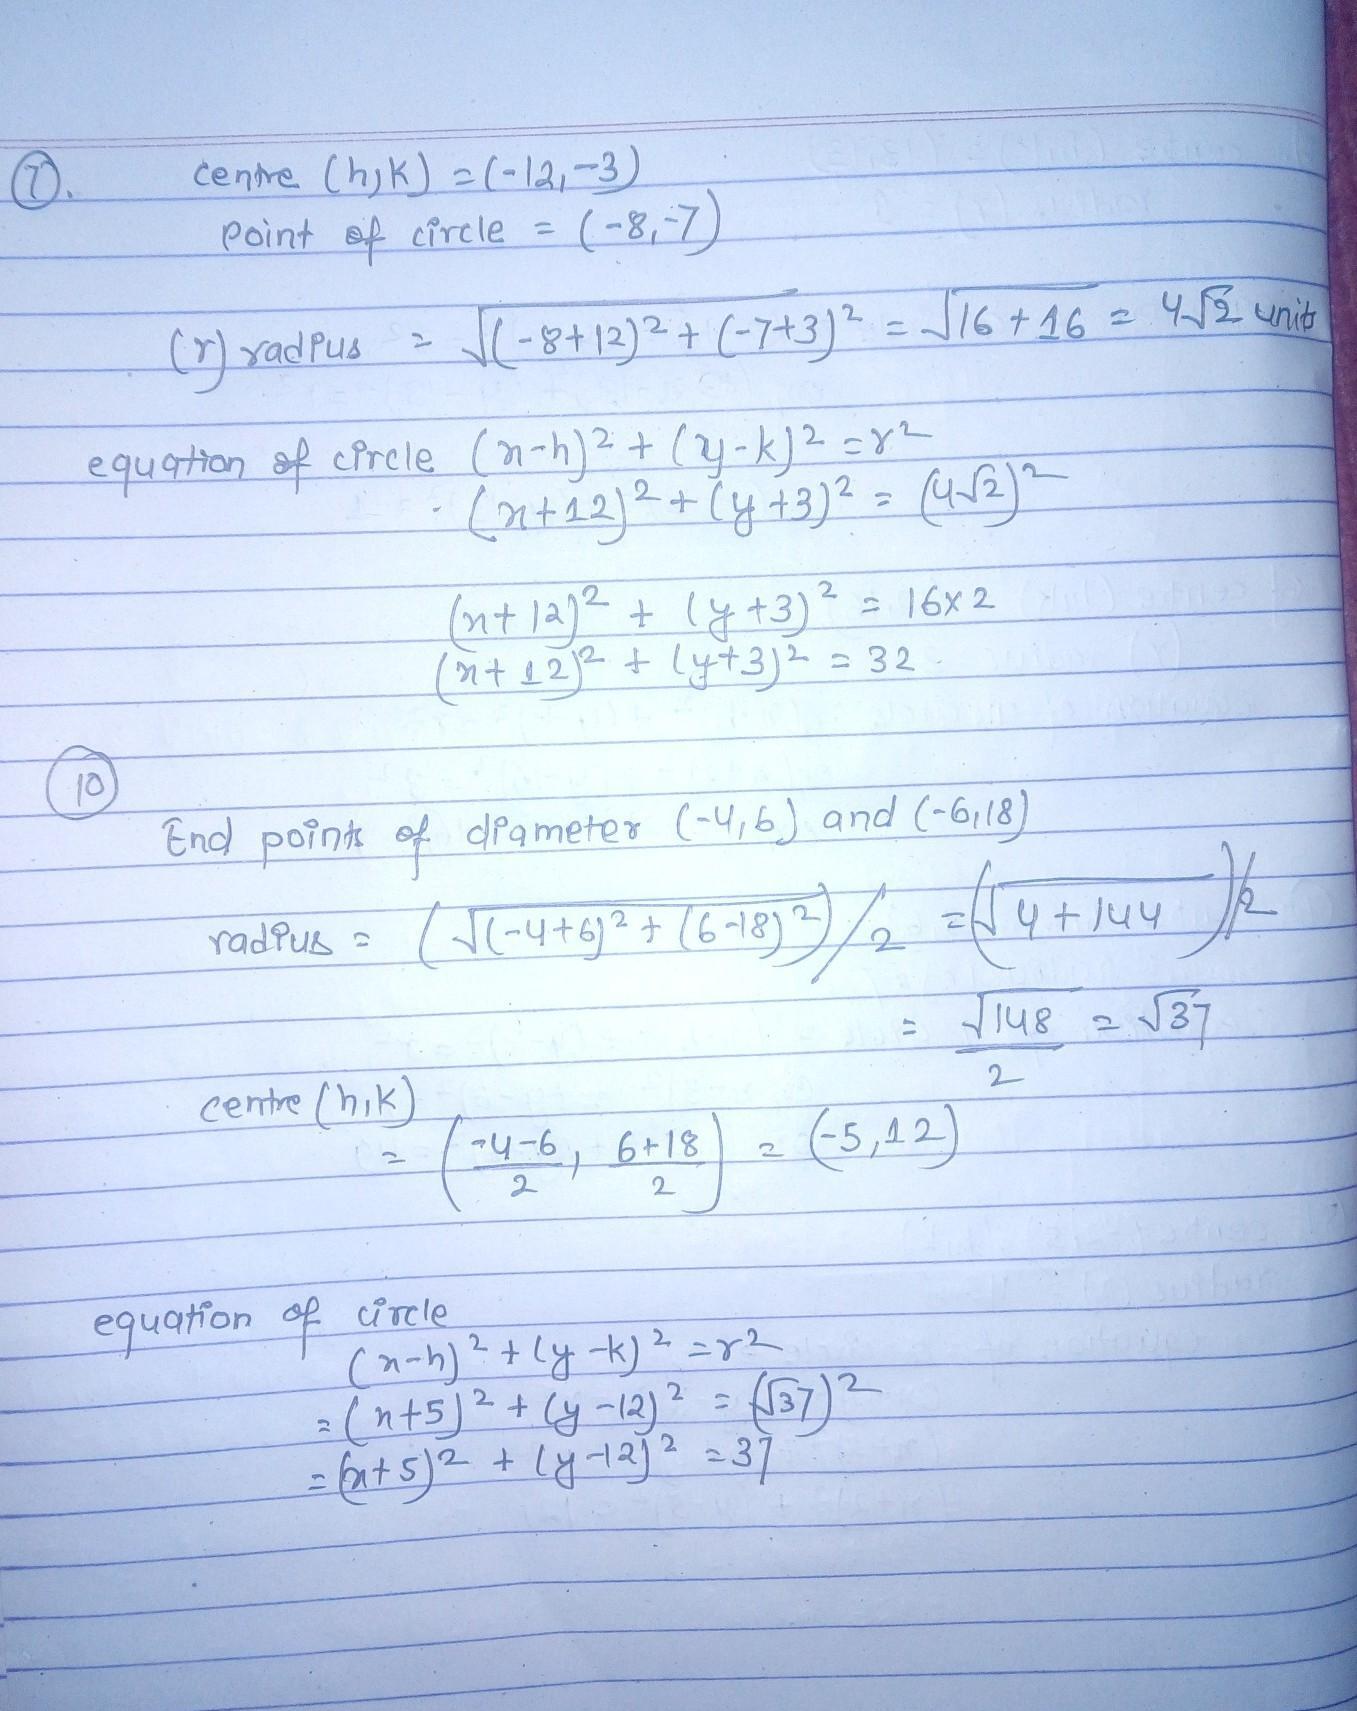 7. centre (h,k) = (-12,-3)
point of circle = (-8,-7)
(r) radius = √(-8+12)² + (-7+3)² = √16 + 16 = 4√2 units
equation of circle (x-h)² + (y-k)² = r²
(x+12)² + (y+3)² = (4√2)²
(x+12)² + (y+3)² = 16×2
(x+12)² + (y+3)² = 32
10
End points of diameter (-4,6) and (-6,18)
radius = (√(-4+6)² + (6-18)²)/2 = (√4+144)/2
= √148/2 = √37
centre (h,k)
= (-4-6/2, 6+18/2) = (-5,12)
equation of circle
(x-h)² + (y-k)² = r²
= (x+5)² + (y-12)² = (√37)²
= (x+5)² + (y-12)² = 37